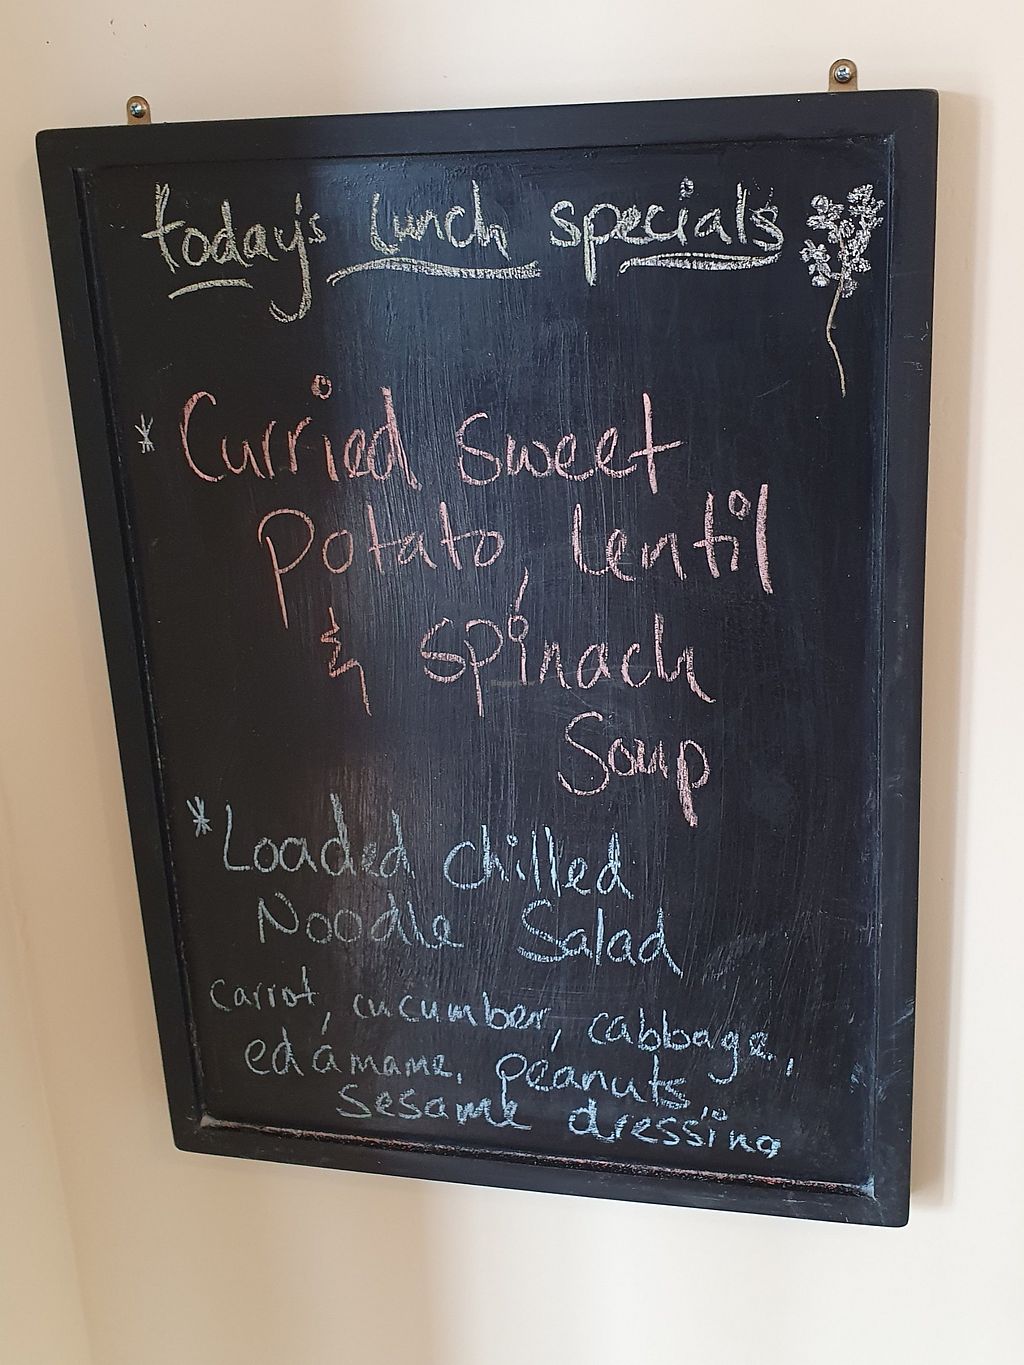 today's lunch specials
* Curried Sweet
Potato, lentil
& spinach
Soup
* Loaded chilled
Noodle Salad
carrot, cucumber, cabbage,
edamame, peanuts,
sesame dressing